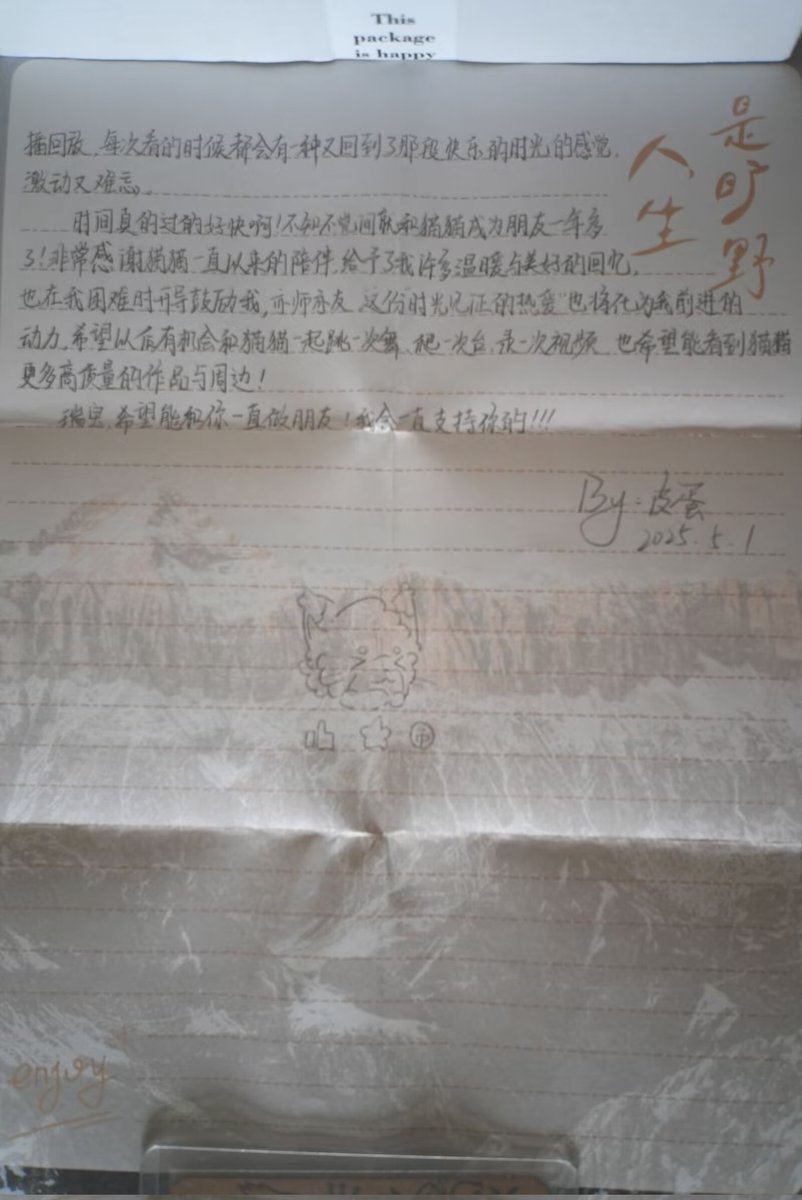 This
package
is happy
人生
是旷野
播回放,每次看的时候都会有一种又回到了那段快乐的时光的感觉,
激动又难忘。
时间真的过的好快啊!不知不觉间就和猫猫成为朋友一年多
了!非常感谢猫猫一直以来的陪伴,给予了我许多温暖与美好的回忆,
也在我困难时开导鼓励我,亦师亦友,这份时光见证的热爱也将化为我前进的
动力,希望以后有机会和猫猫一起跳一次舞,出一次台,录一次视频,也希望能看到猫猫
更多高质量的作品与周边!
瑞宝,希望能和你一直做朋友!我会一直支持你的!!!
By:皮蛋
2025.5.1
币
enjoy